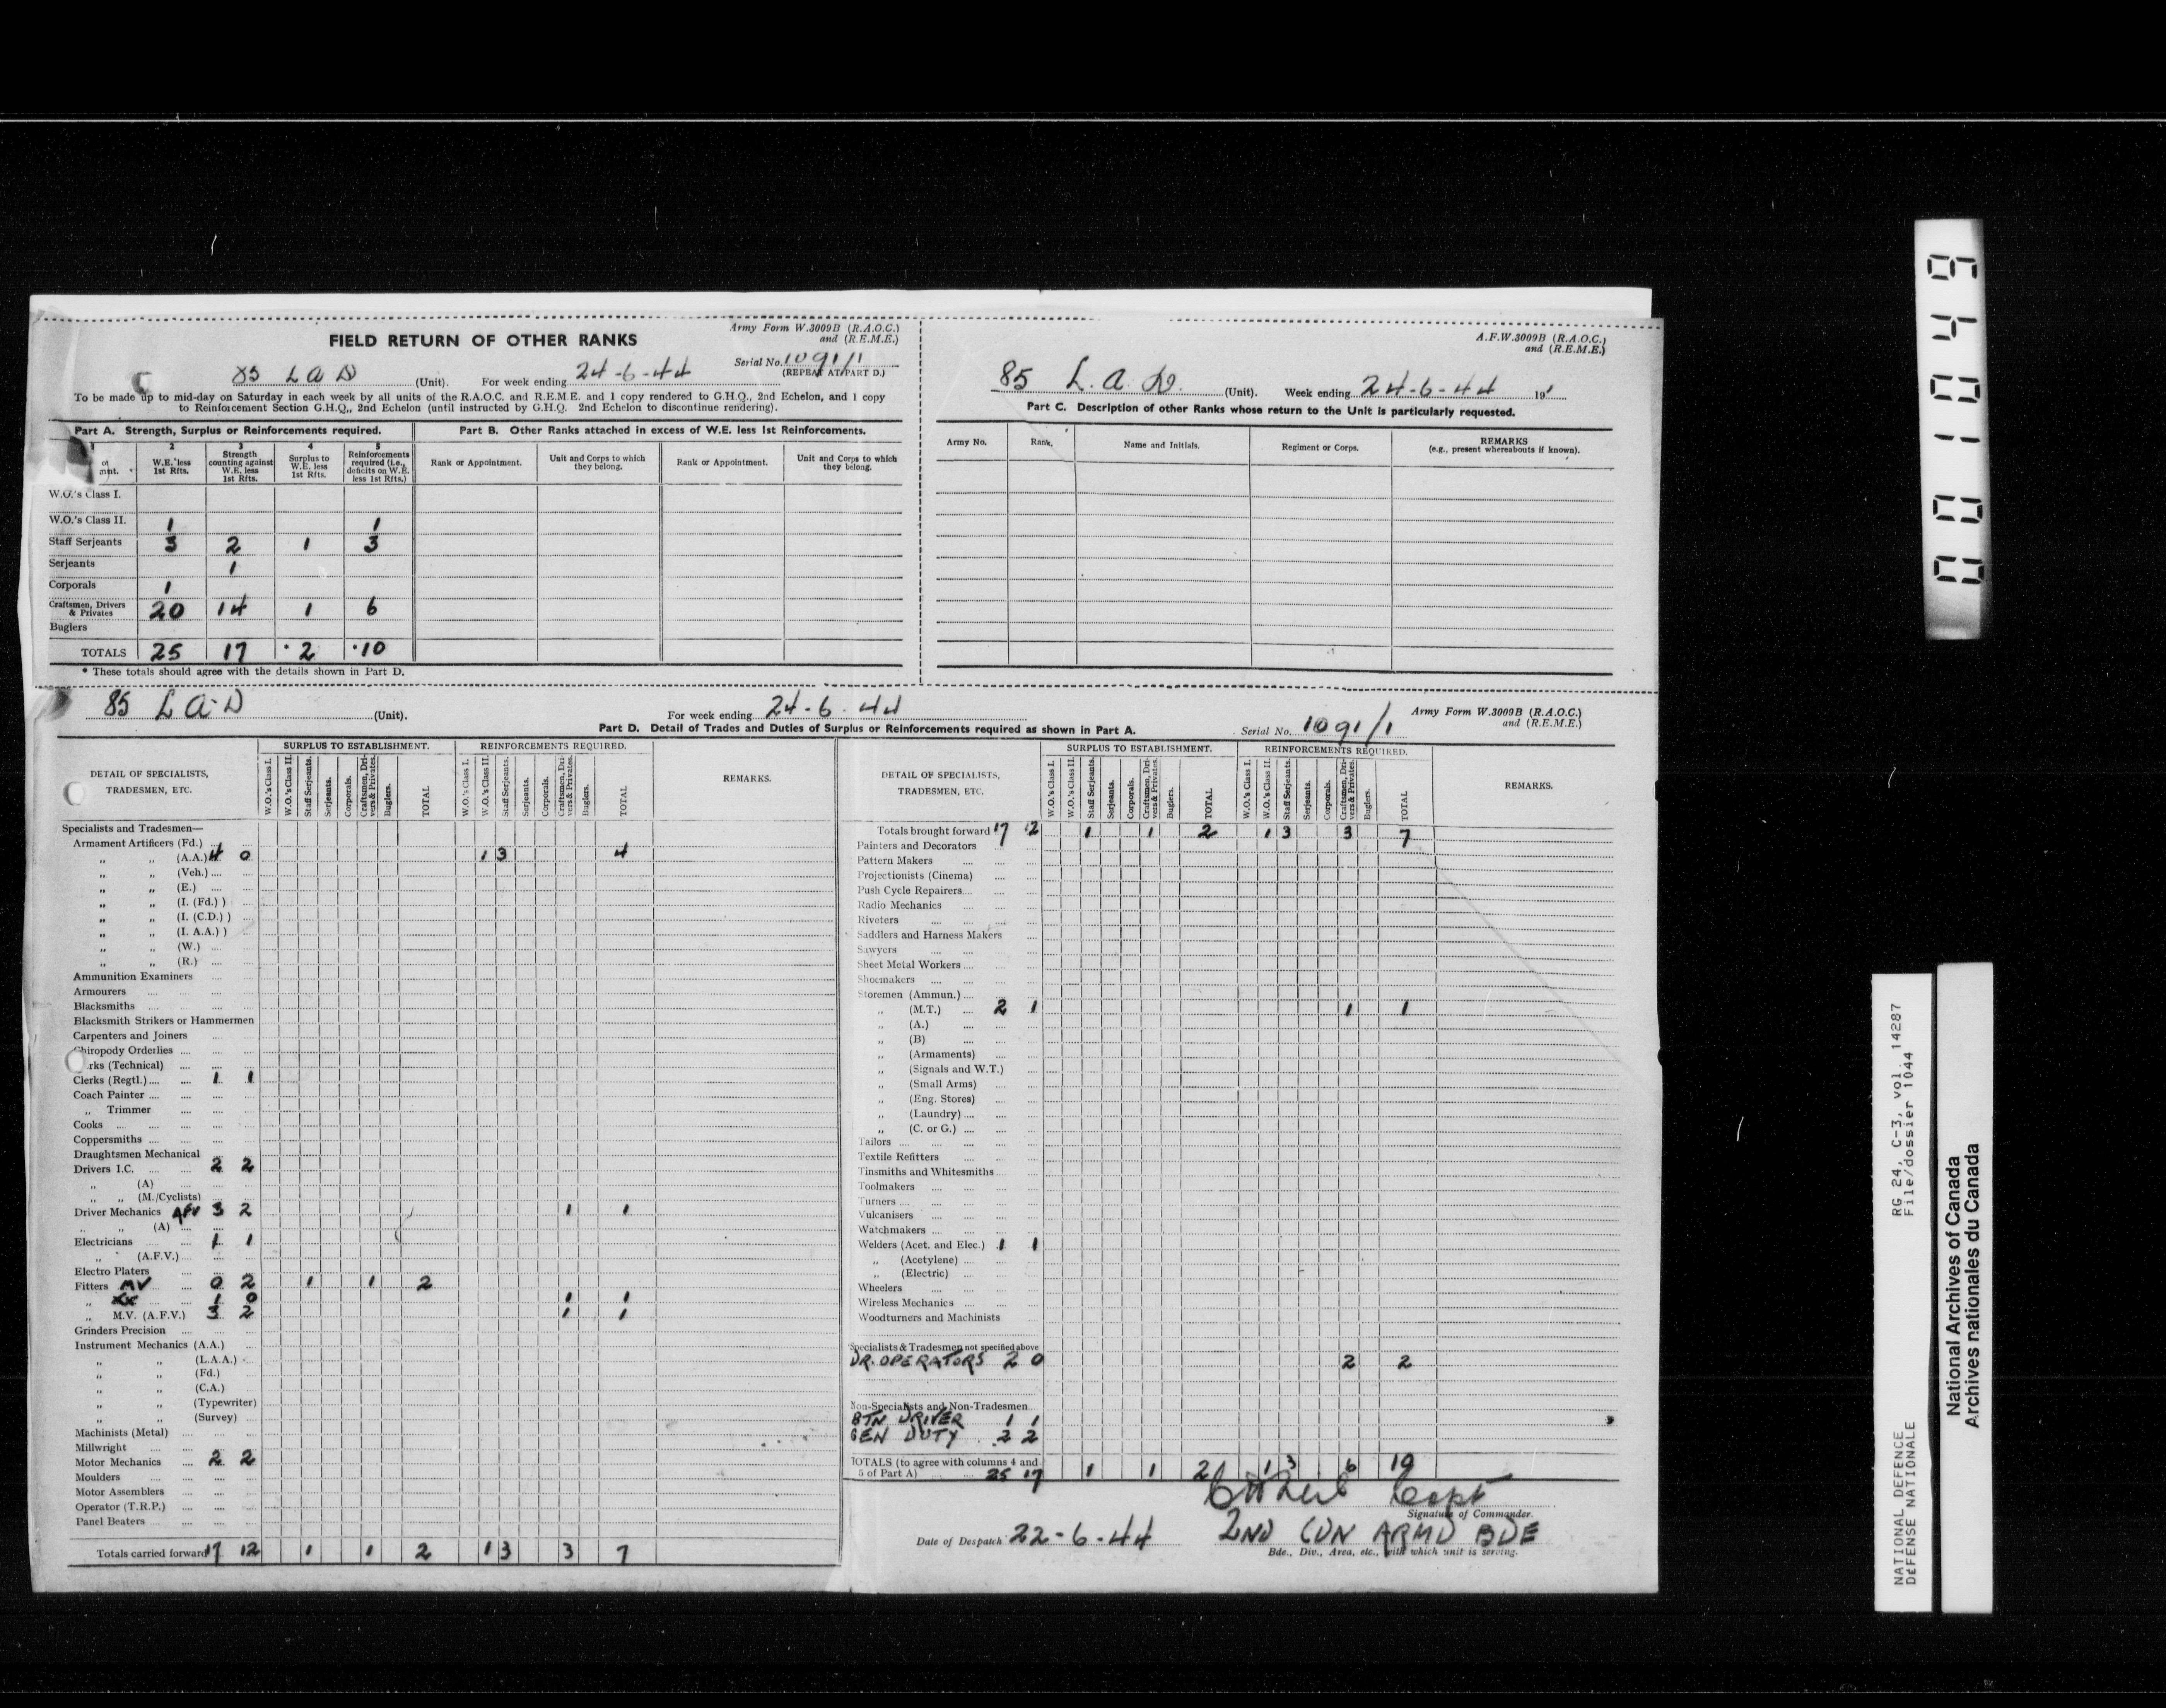 FIELD RETURN OF OTHER RANKS
Army Form W.3009B (R.A.O.C.)
and (R.E.M.E.)
Serial No. 1091/1
(REPEAT AT PART D.)
85 L A D (Unit). For week ending 24-6-44
To be made up to mid-day on Saturday in each week by all units of the R.A.O.C. and R.E.M.E. and 1 copy rendered to G.H.Q., 2nd Echelon, and 1 copy
to Reinforcement Section G.H.Q., 2nd Echelon (until instructed by G.H.Q. 2nd Echelon to discontinue rendering).
Part A. Strength, Surplus or Reinforcements required.
1 2 3 4 5
W.E. less 1st Rfts.
Strength counting against W.E. less 1st Rfts.
Surplus to W.E. less 1st Rfts.
Reinforcements required (i.e., deficits on W.E. less 1st Rfts.)
W.O.'s Class I.
W.O.'s Class II. 1 1
Staff Serjeants 3 2 1 3
Serjeants 1
Corporals 1
Craftsmen, Drivers & Privates 20 14 1 6
Buglers
TOTALS 25 17 2 10
* These totals should agree with the details shown in Part D.
Part B. Other Ranks attached in excess of W.E. less 1st Reinforcements.
Rank or Appointment. Unit and Corps to which they belong. Rank or Appointment. Unit and Corps to which they belong.
A.F.W.3009B (R.A.O.C.)
and (R.E.M.E.)
85 L.A.D. (Unit). Week ending 24-6-44 19
Part C. Description of other Ranks whose return to the Unit is particularly requested.
Army No. Rank. Name and Initials. Regiment or Corps. REMARKS
(e.g., present whereabouts if known).
85 L A D (Unit). For week ending 24-6-44
Army Form W.3009B (R.A.O.C.)
and (R.E.M.E.)
Part D. Detail of Trades and Duties of Surplus or Reinforcements required as shown in Part A. Serial No. 1091/1
DETAIL OF SPECIALISTS, TRADESMEN, ETC.
SURPLUS TO ESTABLISHMENT. REINFORCEMENTS REQUIRED. REMARKS.
W.O.'s Class I. W.O.'s Class II. Staff Serjeants. Serjeants. Corporals. Craftsmen, Drivers & Privates. Buglers. TOTAL
W.O.'s Class I. W.O.'s Class II. Staff Serjeants. Serjeants. Corporals. Craftsmen, Drivers & Privates. Buglers. TOTAL
Specialists and Tradesmen—
Armament Artificers (Fd.)
„ „ (A.A.) 4 0 1 3 4
„ „ (Veh.)
„ „ (E.)
„ „ (I. (Fd.) )
„ „ (I. (C.D.) )
„ „ (I. A.A.) )
„ „ (W.)
„ „ (R.)
Ammunition Examiners
Armourers
Blacksmiths
Blacksmith Strikers or Hammermen
Carpenters and Joiners
Chiropody Orderlies
rks (Technical)
Clerks (Regtl.) 1 1
Coach Painter
„ Trimmer
Cooks
Coppersmiths
Draughtsmen Mechanical
Drivers I.C. 2 2
„ (A)
„ „ (M./Cyclists)
Driver Mechanics AFV 3 2 1 1
„ „ (A)
Electricians 1 1
„ (A.F.V.)
Electro Platers
Fitters MV 0 2 1 1 2
„ 1 0 1 1
„ M.V. (A.F.V.) 3 2 1 1
Grinders Precision
Instrument Mechanics (A.A.)
„ „ (L.A.A.)
„ „ (Fd.)
„ „ (C.A.)
„ „ (Typewriter)
„ „ (Survey)
Machinists (Metal)
Millwright
Motor Mechanics 2 2
Moulders
Motor Assemblers
Operator (T.R.P.)
Panel Beaters
Totals carried forward 17 12 1 1 2 1 3 3 7
DETAIL OF SPECIALISTS, TRADESMEN, ETC.
SURPLUS TO ESTABLISHMENT. REINFORCEMENTS REQUIRED. REMARKS.
W.O.'s Class I. W.O.'s Class II. Staff Serjeants. Serjeants. Corporals. Craftsmen, Drivers & Privates. Buglers. TOTAL
W.O.'s Class I. W.O.'s Class II. Staff Serjeants. Serjeants. Corporals. Craftsmen, Drivers & Privates. Buglers. TOTAL
Totals brought forward 17 12 1 1 2 1 3 3 7
Painters and Decorators
Pattern Makers
Projectionists (Cinema)
Push Cycle Repairers
Radio Mechanics
Riveters
Saddlers and Harness Makers
Sawyers
Sheet Metal Workers
Shoemakers
Storemen (Ammun.)
„ (M.T.) 2 1 1 1
„ (A.)
„ (B)
„ (Armaments)
„ (Signals and W.T.)
„ (Small Arms)
„ (Eng. Stores)
„ (Laundry)
„ (C. or G.)
Tailors
Textile Refitters
Tinsmiths and Whitesmiths
Toolmakers
Turners
Vulcanisers
Watchmakers
Welders (Acet. and Elec.) 1 1
„ (Acetylene)
„ (Electric)
Wheelers
Wireless Mechanics
Woodturners and Machinists
Specialists & Tradesmen not specified above
DR. OPERATORS 2 0 2 2
Non-Specialists and Non-Tradesmen
BTN DRIVER 1 1
GEN DUTY 2 2
TOTALS (to agree with columns 4 and
5 of Part A) 25 17 1 1 2 1 3 6 10
Capt
Signature of Commander.
Date of Despatch 22-6-44 2ND CDN ARMD BDE
Bde., Div., Area, etc., with which unit is serving.
0 0 1 0 4 9
RG 24, C-3, vol. 14287
File/dossier 1044
NATIONAL DEFENCE
DEFENSE NATIONALE
National Archives of Canada
Archives nationales du Canada